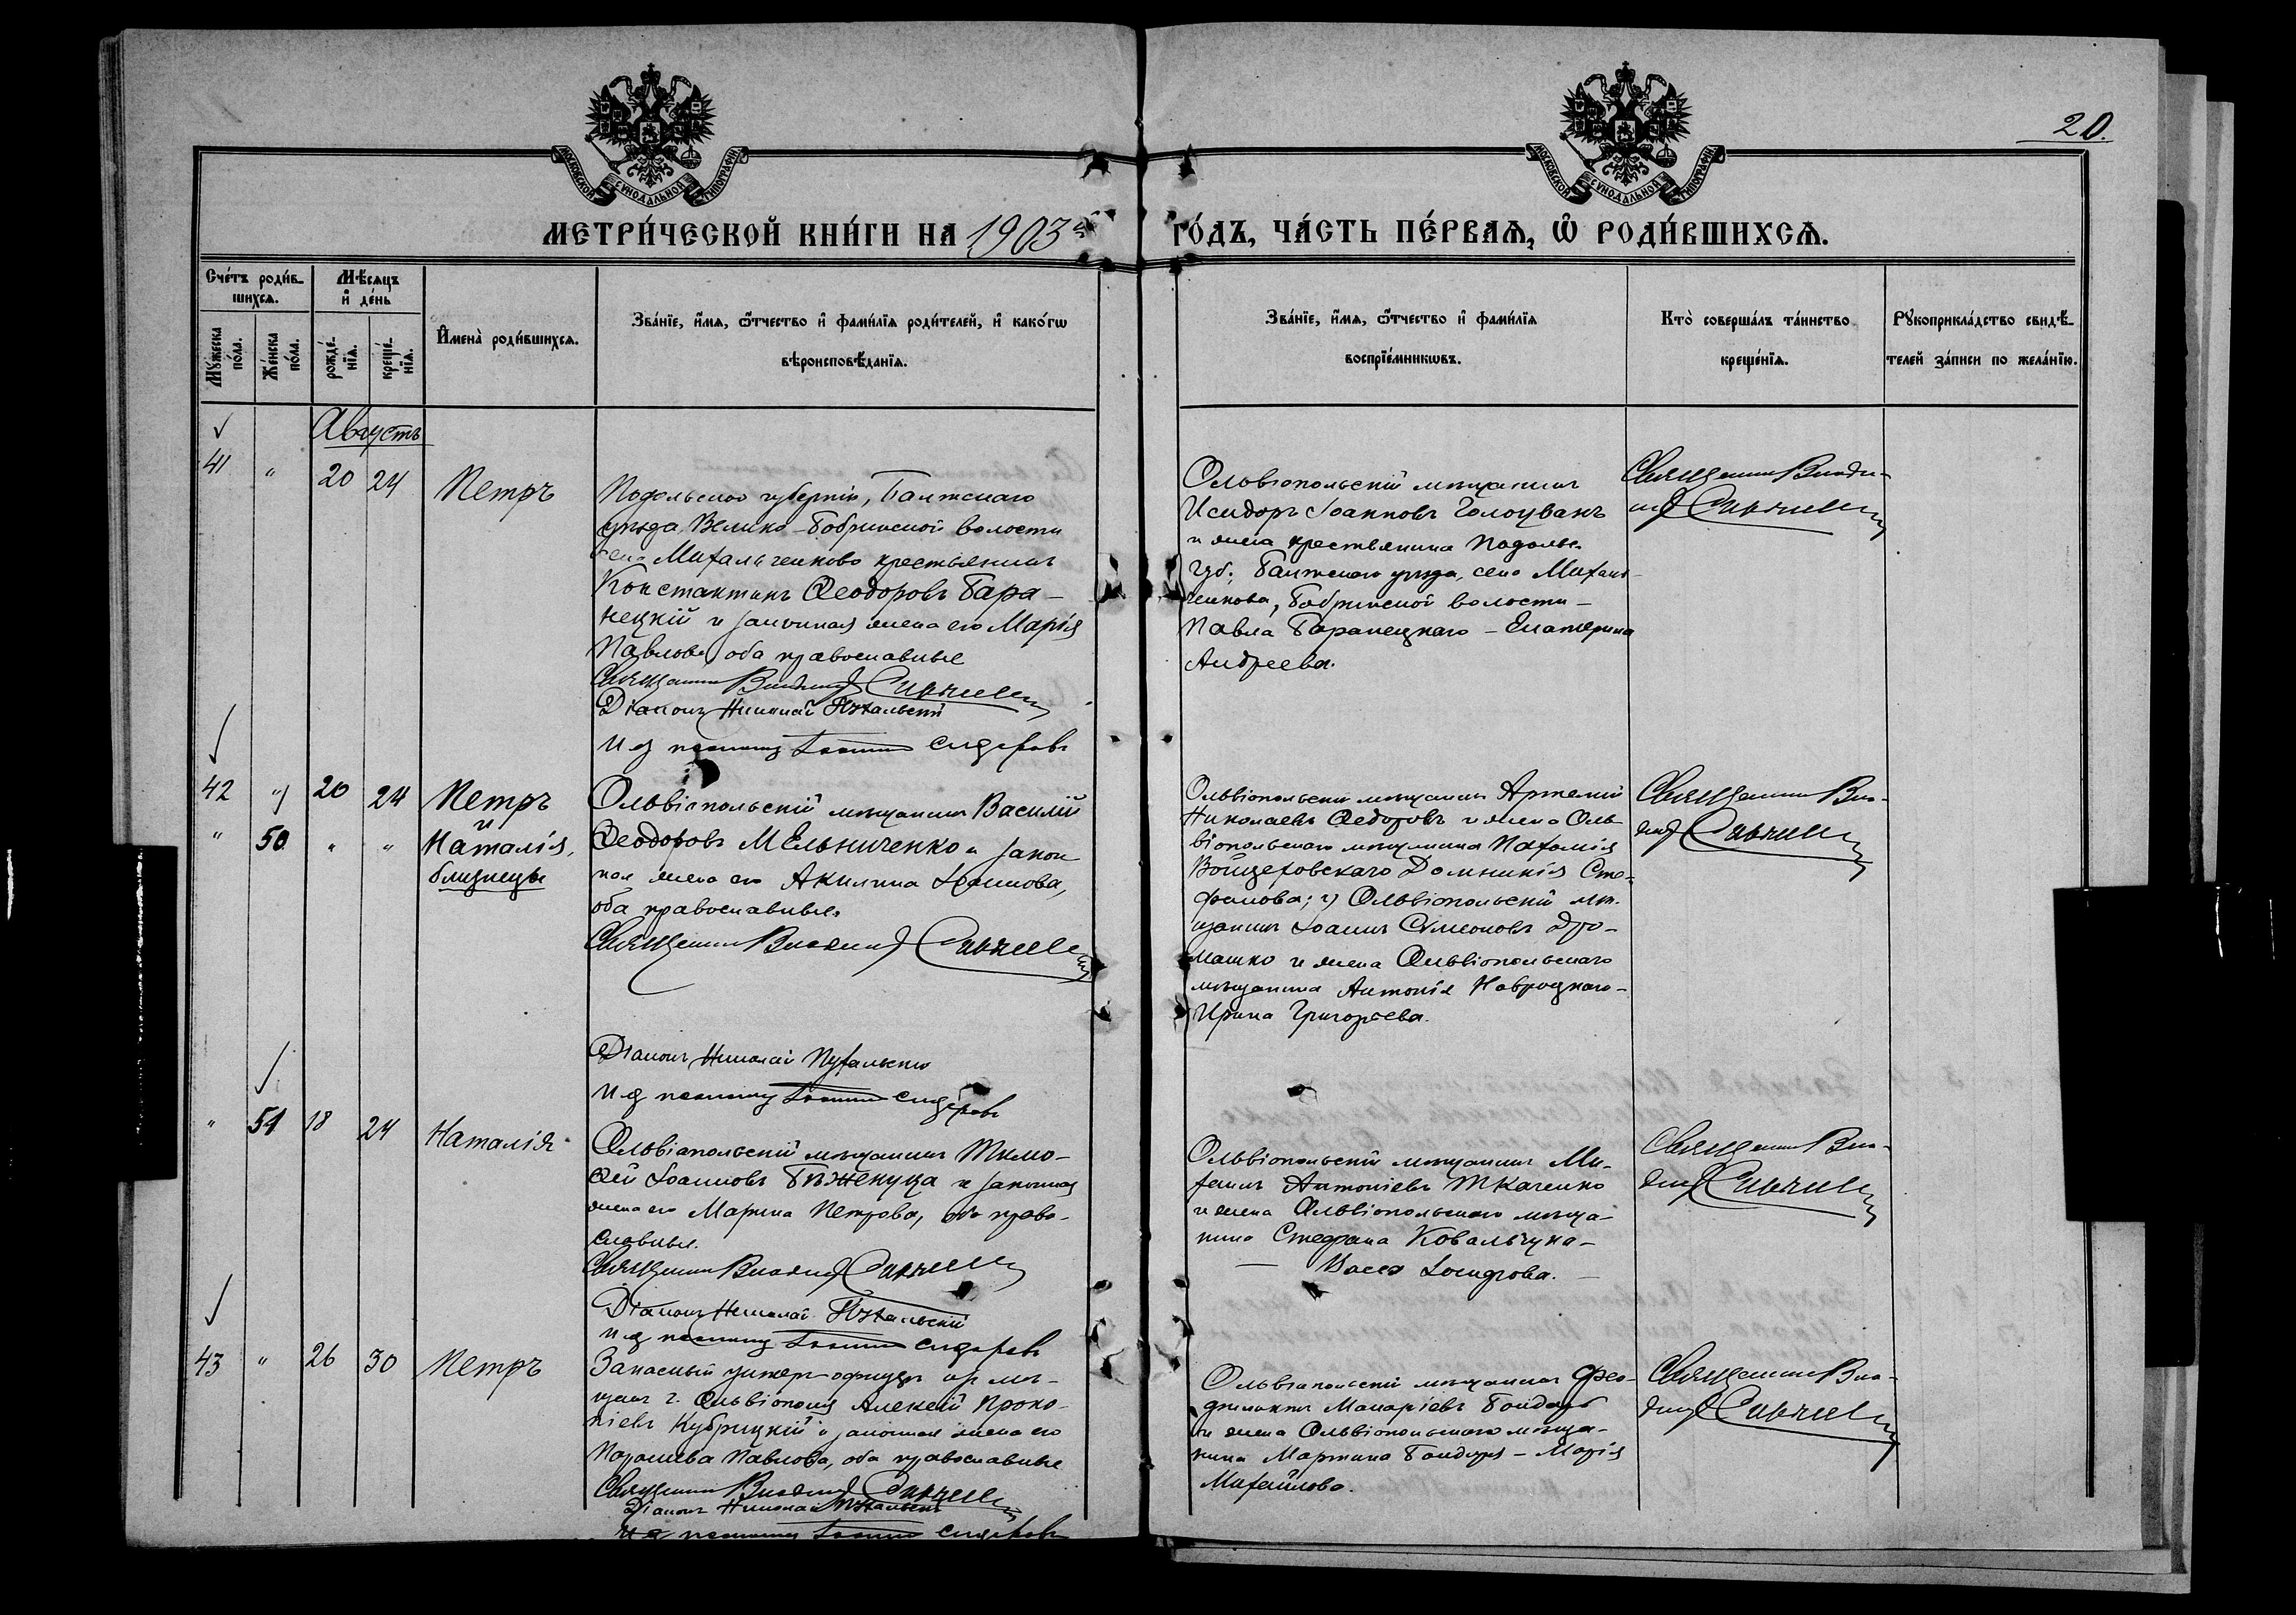 20.
МОСКОВСКОЙ СѴНОДАЛЬНОЙ ТИПОГРАФІИ
МОСКОВСКОЙ СѴНОДАЛЬНОЙ ТИПОГРАФІИ
МЕТРИ́ЧЕСКОЙ КНИ́ГИ НА 1903й
ГО́ДЪ, ЧА́СТЬ ПЕ́РВАѦ, Ѡ҆ РОДИ́ВШИХСѦ.
Сче́тъ роди́в-
шихсѧ.
Мꙋ́жеска по́ла.
Же́нска по́ла.
Мѣ́сѧцъ
и҆ де́нь
рожде́-
нїѧ.
креще́-
нїѧ.
И҆мена̀ роди́вшихсѧ.
Зва́нїе, и҆́мѧ, ѻ҆́тчество и҆ фами́лїѧ роди́телей, и҆ како́гѡ
вѣроисповѣ́данїѧ.
Зва́нїе, и҆́мѧ, ѻ҆́тчество и҆ фами́лїѧ
воспрїе́мникѡвъ.
Кто̀ соверша́лъ та́инство
креще́нїѧ.
Рꙋкоприкла́дство свидѣ́-
телей за́писи по жела́нїю.
Августъ
41 " 20 24 Петръ
Подольской губерніи, Балтскаго
уѣзда, Велико-Бобринской волости
села Михальченково крестьянинъ
Константинъ Ѳеодоровъ Бара-
нецкій и законная жена его Марія
Павлова, оба православные
Священникъ Владимиръ
Діаконъ Николай
И д псаломщ Іоаннъ Сидоровъ
Ольвіопольскій мѣщанинъ
Исидоръ Іоанновъ Голоцванъ
и жена крестьянина Подольс.
губ., Балтскаго уѣзда, села Михаль-
ченкова, Бобринской волости -
Павла Баранецкаго - Екатерина
Андреева.
Священникъ Влади-
миръ
42 " 20 24 Петръ
и
" 50 " " Наталія,
близнецы
Ольвіопольскій мѣщанинъ Василій
Ѳеодоровъ Мельниченко и закон
ная жена его Акилина Іоаннова,
оба православные.
Священникъ Владимиръ
Діаконъ Николай
И д псаломщ Іоаннъ Сидоровъ
Ольвіопольскій мѣщанинъ Артемій
Николаевъ Ѳедоровъ и жена Оль
віопольскаго мѣщанина
Войцеховскаго Домникія Сте-
фанова; 2) Ольвіопольскій мѣ-
щанинъ Іоаннъ Сѵмеоновъ Дро-
машко и жена Ольвіопольскаго
мѣщанина Антонія Навроцкаго -
Ирина Григорьева.
Священникъ Вла-
димиръ
" 51 18 24 Наталія
Ольвіопольскій мѣщанинъ Тимо-
ѳей Іоанновъ Бѣженуца и законная
жена его Марина Петрова, оба право-
славные.
Священникъ Владимиръ
Діаконъ Николай
И д псаломщ Іоаннъ Сидоровъ
Ольвіопольскій мѣщанинъ Ми-
хаилъ Антоніевъ Ткаченко
и жена Ольвіопольскаго мѣща-
нина Стефана Ковальчука -
Васса Іосифова.
Священникъ Вла-
димиръ
43 " 26 30 Петръ
Запасный унтеръ-офицеръ изъ мѣ-
щанъ г. Ольвіополя Алексѣй Проко-
піевъ Кубрицкій и законная жена его
Параскева Павлова, оба православные
Священникъ Владимиръ
Діаконъ Николай
И д псаломщ Іоаннъ Сидоровъ
Ольвіопольскій мѣщанинъ Фео-
филактъ Макаріевъ Бондарь
и жена Ольвіопольскаго мѣща-
нина Мартина Бондаря - Марія
Михайлова.
Священникъ Вла-
димиръ